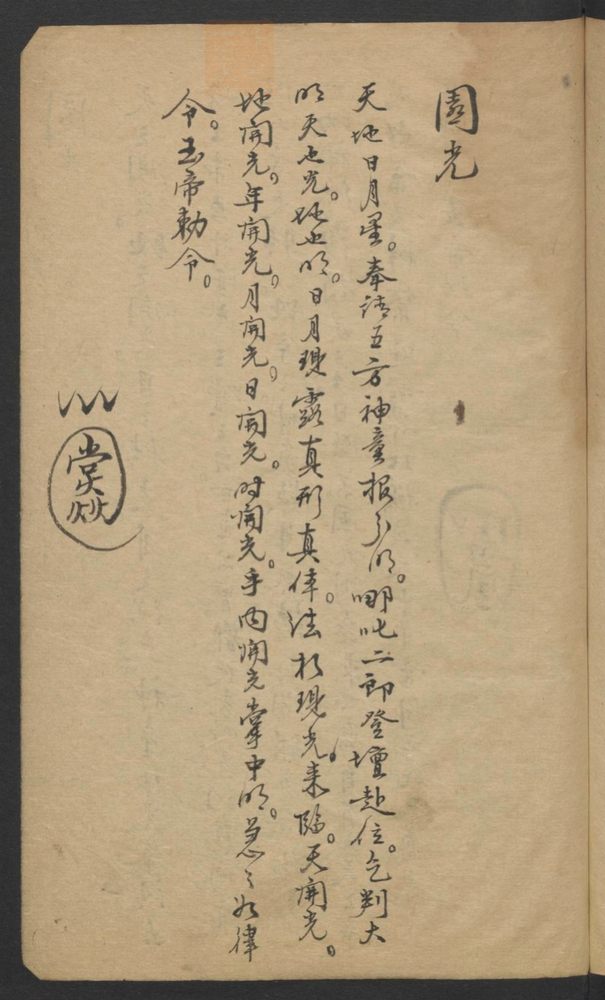 圓光
天地日月星。奉請五方神童報分明。哪吒二郎登壇赴位。乞判大
明天也光。地也明。日月現露真形真体。法杉現光。来臨。天開光。
地開光。年開光。月開光。日開光。时開光。手内開光掌中明。急〻如律
令。玉帝勅令。